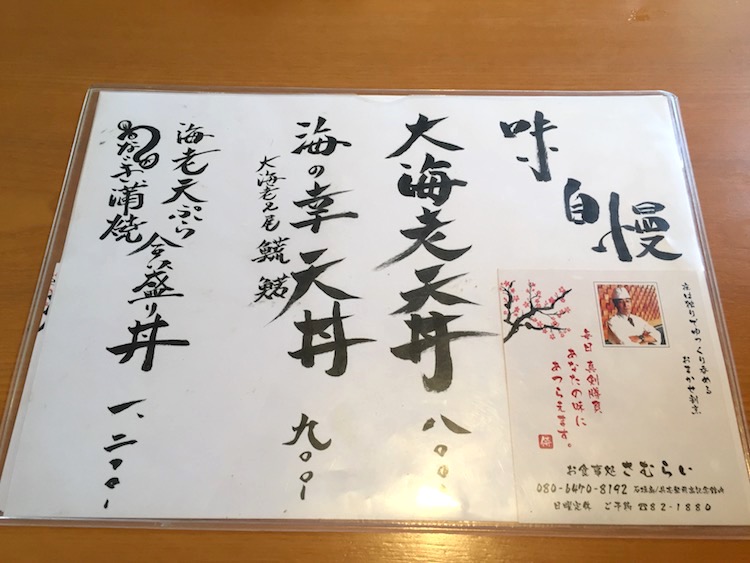 味自慢
大海老天丼 八〇〇
海の幸天丼 九〇〇
大海老2尾
海老天ぷら
うなぎ蒲焼
合い盛り丼 一、二〇〇
夜は独りでゆっくり呑める
おまかせ割烹
毎日 真剣勝負
あなたの味に
あつらえます。
お食事処 さむらい
080-6470-8192
日曜定休 ご予約 ☎82-1880